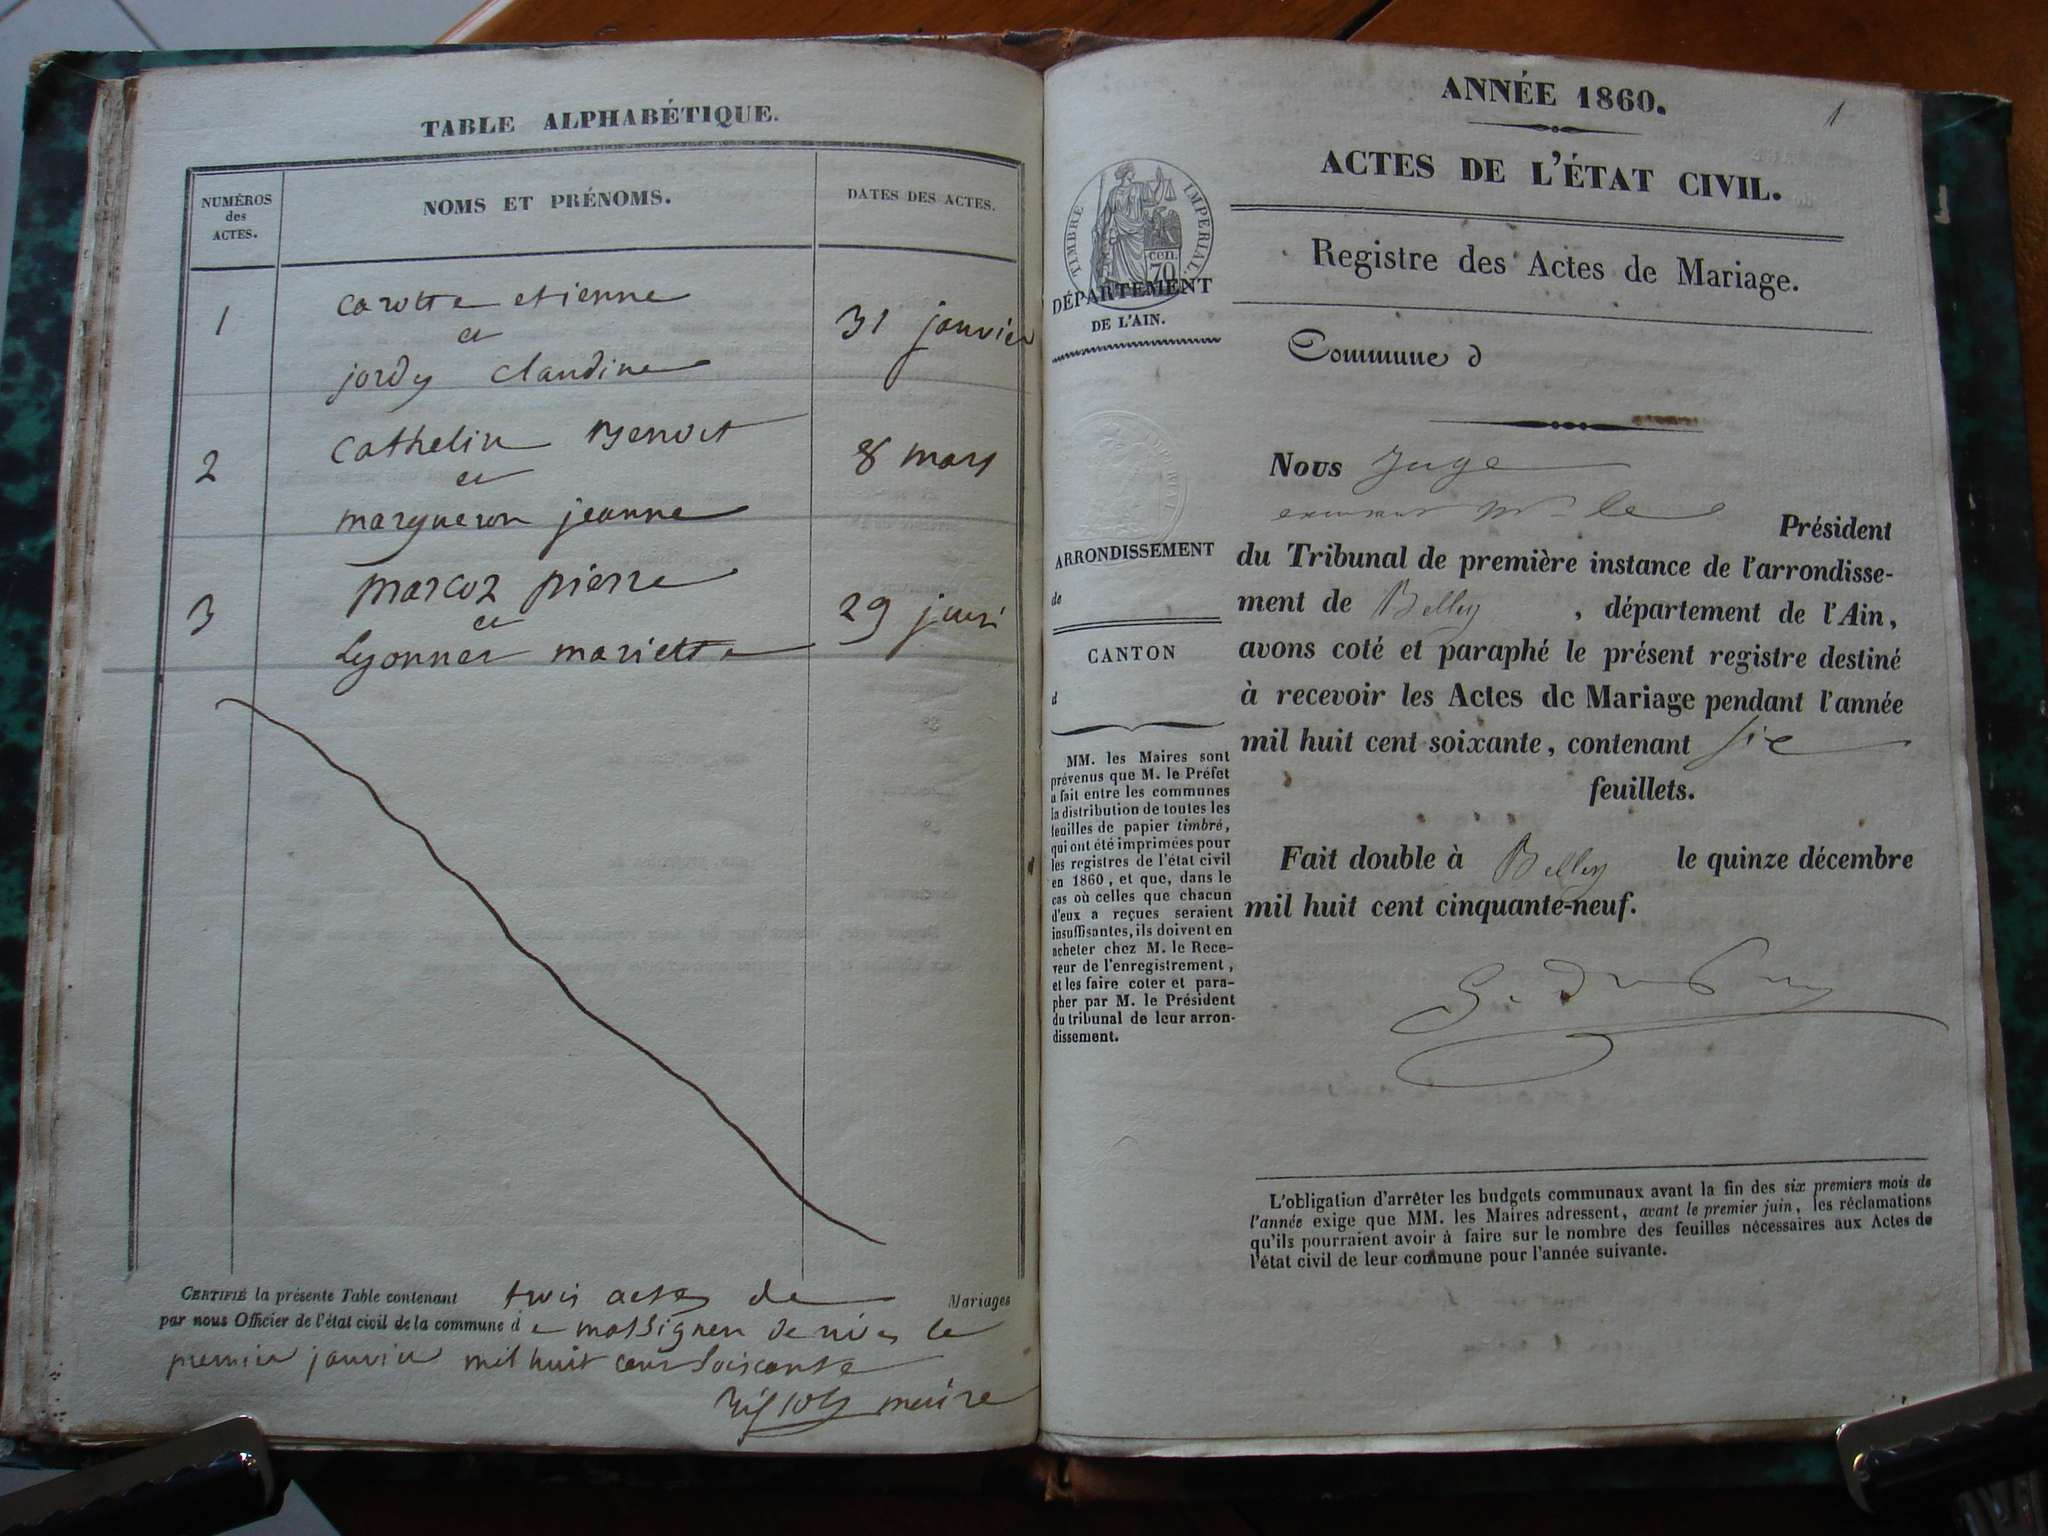 TABLE ALPHABÉTIQUE.
NUMÉROS
des
ACTES.
NOMS ET PRÉNOMS.
DATES DES ACTES.
1
carotte etienne
et
jordy claudine
31 janvier
2
cathelin Benoit
et
margueron jeanne
8 mars
3
marcoz pierre
et
Lyonnet mariette
29 juin
CERTIFIÉ la présente Table contenant trois actes de Mariages
par nous Officier de l'état civil de la commune de massignieu de rives le
premier janvier mil huit cent soixante
maire
ANNÉE 1860.
1
ACTES DE L'ÉTAT CIVIL.
Registre des Actes de Mariage.
TIMBRE IMPÉRIAL.
cen.
70
DÉPARTEMENT
DE L'AIN.
Commune d
ARRONDISSEMENT
de
CANTON
d
MM. les Maires sont
prévenus que M. le Préfet
a fait entre les communes
la distribution de toutes les
feuilles de papier timbré,
qui ont été imprimées pour
les registres de l'état civil
en 1860, et que, dans le
cas où celles que chacun
d'eux a reçues seraient
insuffisantes, ils doivent en
acheter chez M. le Rece-
veur de l'enregistrement,
et les faire coter et para-
pher par M. le Président
du tribunal de leur arron-
dissement.
Nous Juge
Mr le Président
du Tribunal de première instance de l'arrondisse-
ment de Belley, département de l'Ain,
avons coté et paraphé le présent registre destiné
à recevoir les Actes de Mariage pendant l'année
mil huit cent soixante, contenant six
feuillets.
Fait double à Belley le quinze décembre
mil huit cent cinquante-neuf.
L'obligation d'arrêter les budgets communaux avant la fin des six premiers mois de
l'année exige que MM. les Maires adressent, avant le premier juin, les réclamations
qu'ils pourraient avoir à faire sur le nombre des feuilles nécessaires aux Actes de
l'état civil de leur commune pour l'année suivante.